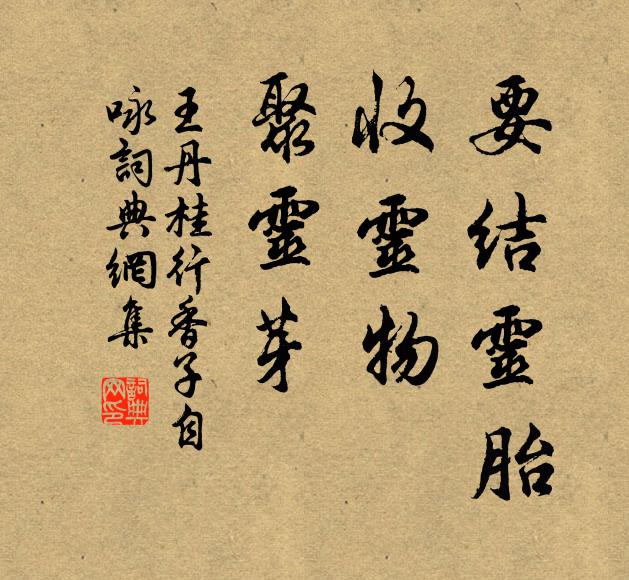 要結靈胎
收靈物
聚靈芽
王丹桂行香子自
咏詞典網集
詞典网印